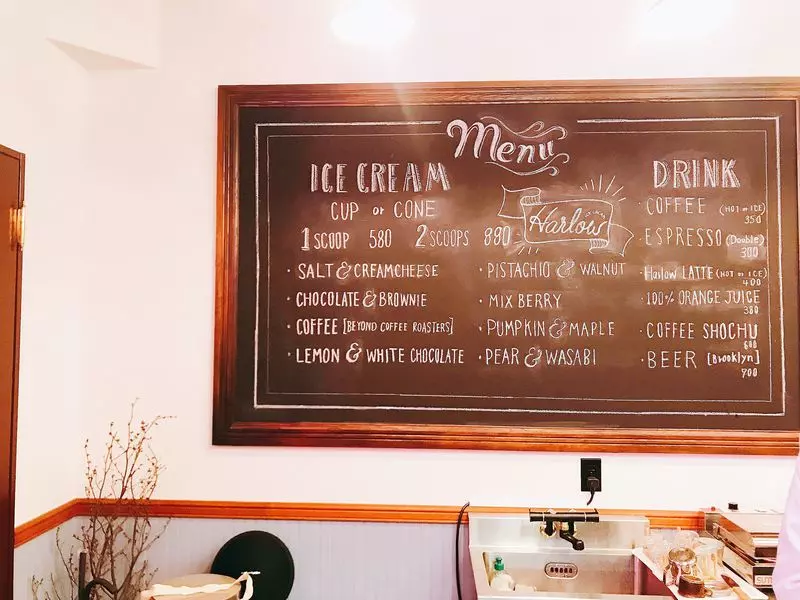 Menu
ICE CREAM
CUP or CONE
1 SCOOP 580 2 SCOOPS 880
• SALT & CREAMCHEESE
• CHOCOLATE & BROWNIE
• COFFEE [BEYOND COFFEE ROASTERS]
• LEMON & WHITE CHOCOLATE
Harlow
• PISTACHIO & WALNUT
• MIX BERRY
• PUMPKIN & MAPLE
• PEAR & WASABI
DRINK
• COFFEE (HOT or ICE)
350
• ESPRESSO (Double)
300
• Harlow LATTE (HOT or ICE)
400
• 100% ORANGE JUICE
380
• COFFEE SHOCHU
600
• BEER [Brooklyn]
700